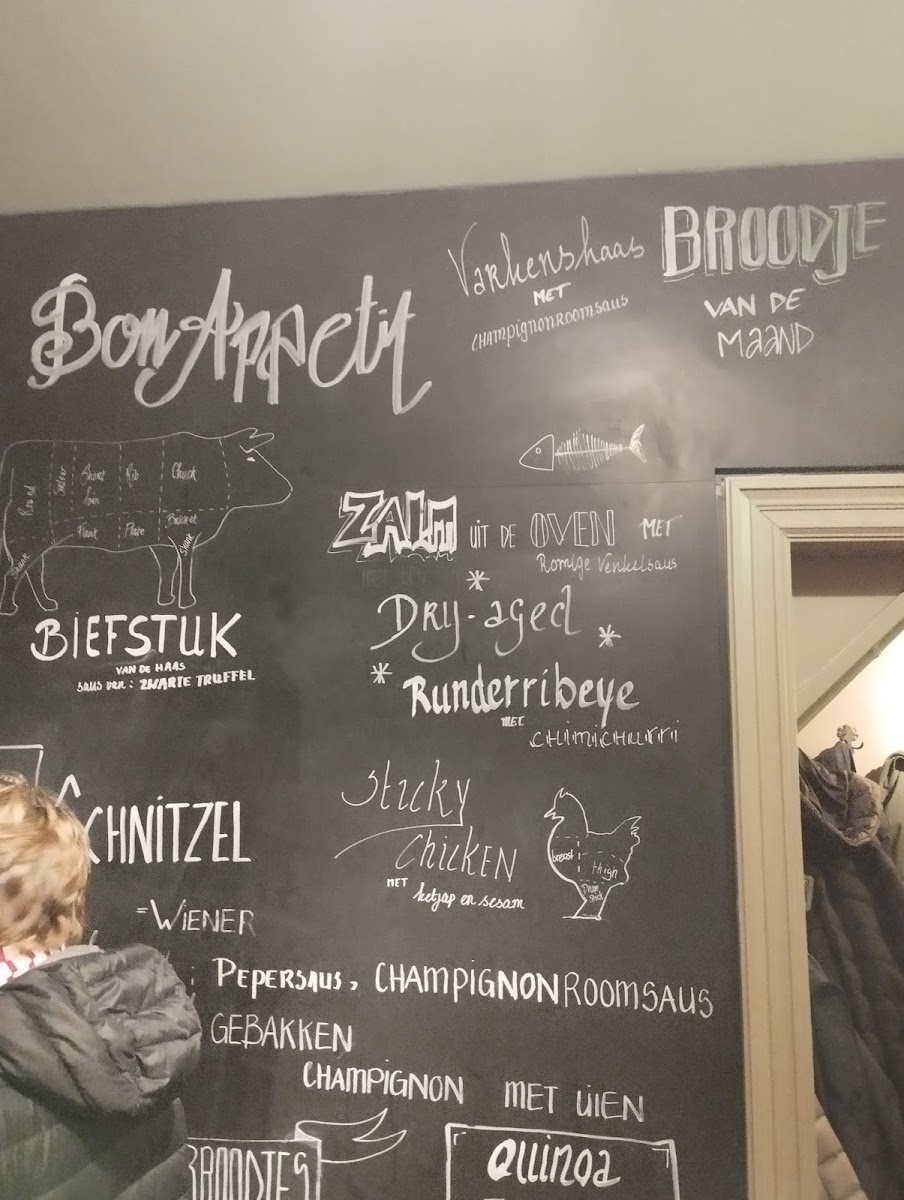 Bon Appetit
Varkenshaas
MET
CHAMPIGNONROOMSAUS
BROODJE
VAN DE
MAAND
Short Rib Chuck
loin
Plate
Shank Shank
BIEFSTUK
VAN DE HAAS
saus van: ZWARTE TRUFFEL
ZALM UIT DE OVEN MET
Romige Venkelsaus
* DRY-aged *
* Runderribeye
MET
CHIMICHURRI
Sticky
Chicken
MET ketjap en sesam
breast thigh
Drum
Stick
SCHNITZEL
=WIENER
: PEPERSAUS, CHAMPIGNONROOMSAUS
GEBAKKEN
CHAMPIGNON MET UIEN
BROODJES
QUINOA